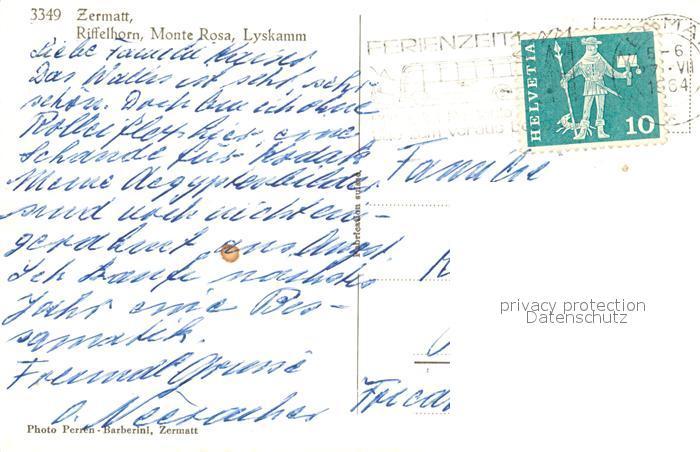 3349 Zermatt,
Riffelhorn, Monte Rosa, Lyskamm
Liebe Familie
Das Wallis ist sehr, sehr
schön. Doch bin ich ohne
Rolleiflex hier, eine
Schande für Kodak
Meine Aegyptenbilder
sind noch nicht ein-
gerahmt aus Angst.
Ich kaufe nächstes
Jahr eine Bes-
samatik.
Freundl. Grüsse
Photo Perren-Barberini, Zermatt
Fabrication suisse
FERIENZEIT
zum voraus
HELVETIA
10
5-6
VII
1964
Familie
privacy protection
Datenschutz